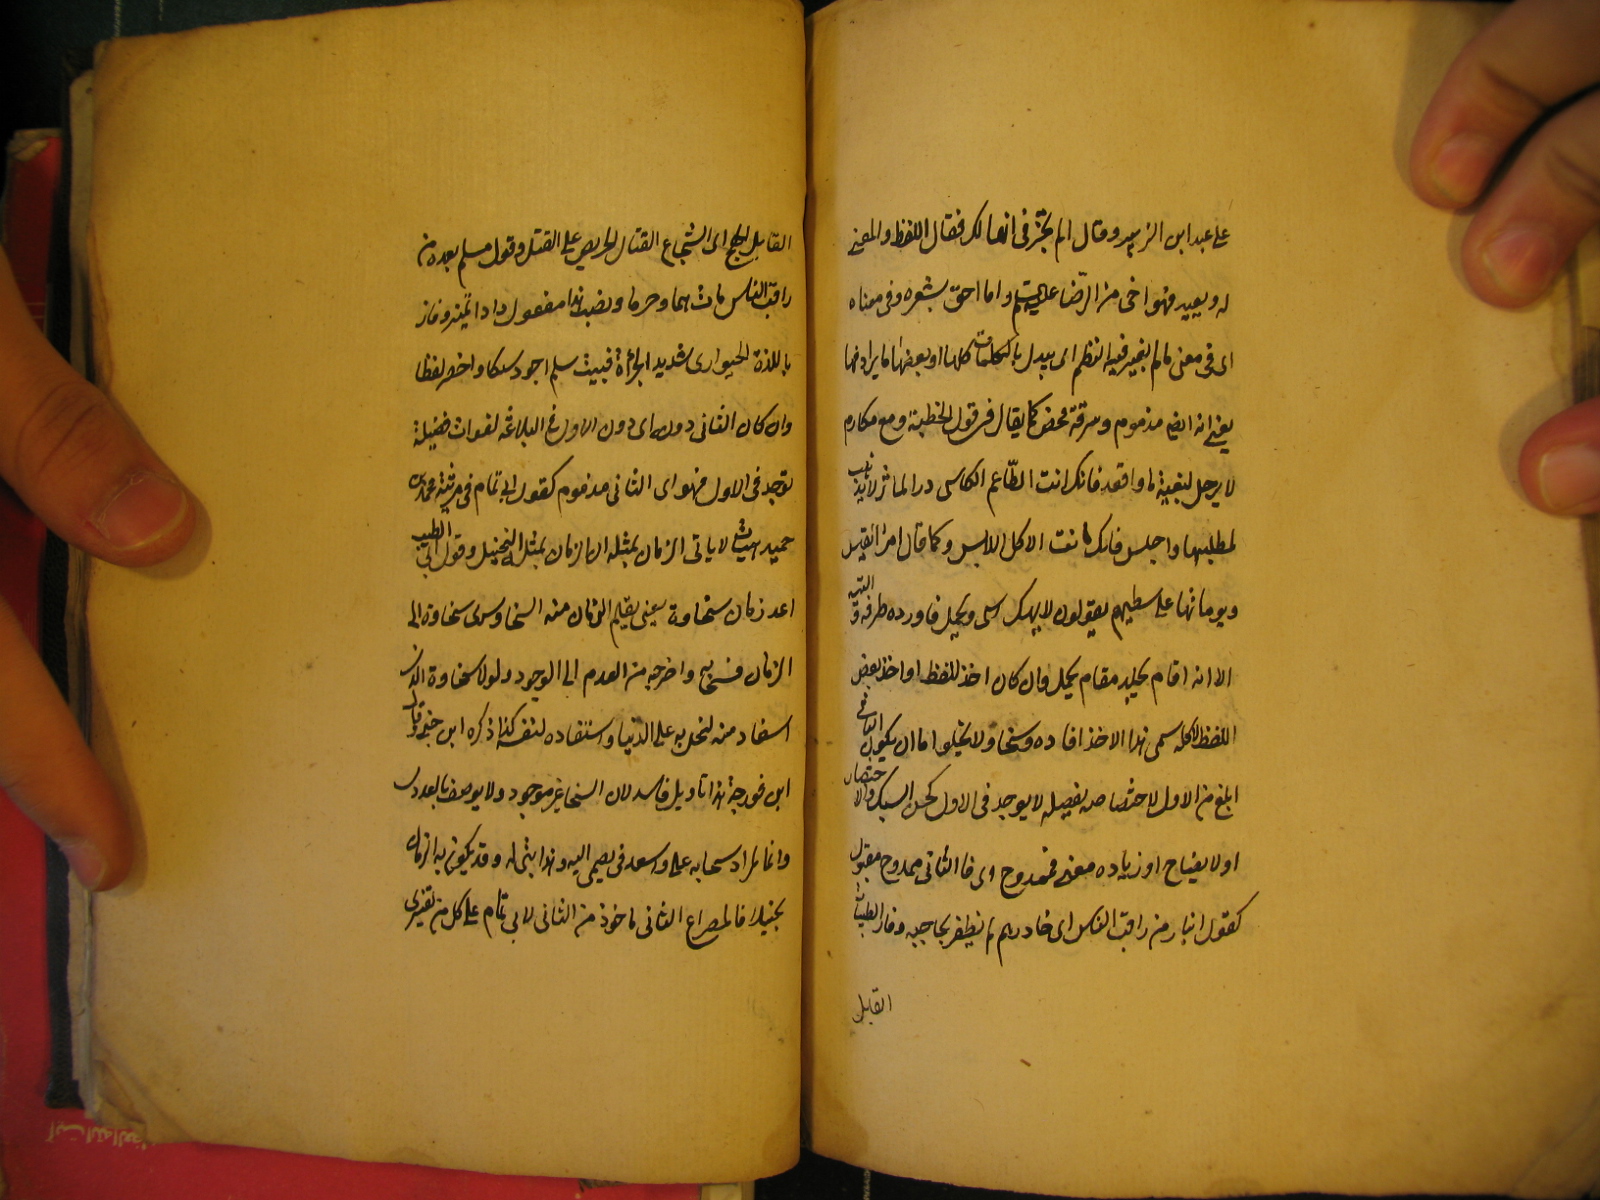 على عبد ابن الزبير وقال الم تخبرنى انها لك فقال اللفظ والمعنى
له وبعيد فهو اخى من الرضاعة وانا احق بشعره وفى معناه
اى فى معنى مالم يغير فيه النظم اى يبدل بالكلمات كلها او بعضها ما يرادفها
يعنى انه ايضا مذموم وسرقة محض كما يقال فى قول الحطيئة ومع مكارم
لا يرحل لبغيتها واقعد فانك انت الطاعم الكاسى در الماثر لا يذهب
لمطلبها واجلس فانك انت الاكل الابس وكما قال امرا القيس
وبها على مطيهم يقولون لا تهلك اسى وتجمل فاورده طرفة فى
الا انه اقام تجلد مقام تجمل وان كان اخذ اللفظ او اخذ بعض
اللفظ لا كله سمى هذا الاخذ اغارة ومسخا ولا يخلوا اما ان يكون الثانى
ابلغ من الاول لاختصاصه بفضيلة لا يوجد فى الاول كحسن السبك والاختصار
او لايضاح او زيادة معنى فممدوح اى فالثانى ممدوح مقبول
كقول بشار من راقب الناس اى حاذرهم لم يظفر بحاجته وفاز بالطيبات
القايل
القايل اللهج اى الشجاع القتال الحريص على القتل وقول سلم بعده من
راقب الناس مات هما وحزما ونصبه مفعول او تميز وفاز
باللذة الجسور اى شديد الجرأة فبيت سلم اجود سبكا واخصر لفظا
وان كان الثانى دونه اى دون الاول فى البلاغة لفوات فضيلة
توجد فى الاول فهو اى الثانى مذموم كقول ابى تمام فى مرثية محمد بن
حميد هيهات لا ياتى الزمان بمثله ان الزمان بمثله لبخيل وقول ابى الطيب
اعدى الزمان سخاوه يعنى تعلم الزمان منه السخا وسرى سخاوه الى
الزمان فسخى به واخرجه من العدم الى الوجود ولولا سخاوه الذى
استفاد منه لبخل به على الدنيا واستبقاه لنفسه كذا ذكره ابن جنى وقال
ابن فورجة هذا تاويل فاسد لان السخا غير موجود ولا يوصف بالعدوى
وانما المراد سخا به على واسعدنى بضمى اليه وهدايتى له ولقد يكون به الزمان
بخيلا فالمصراع الثانى ماخوذ من الثانى لابى تمام على كل من تفسيرى